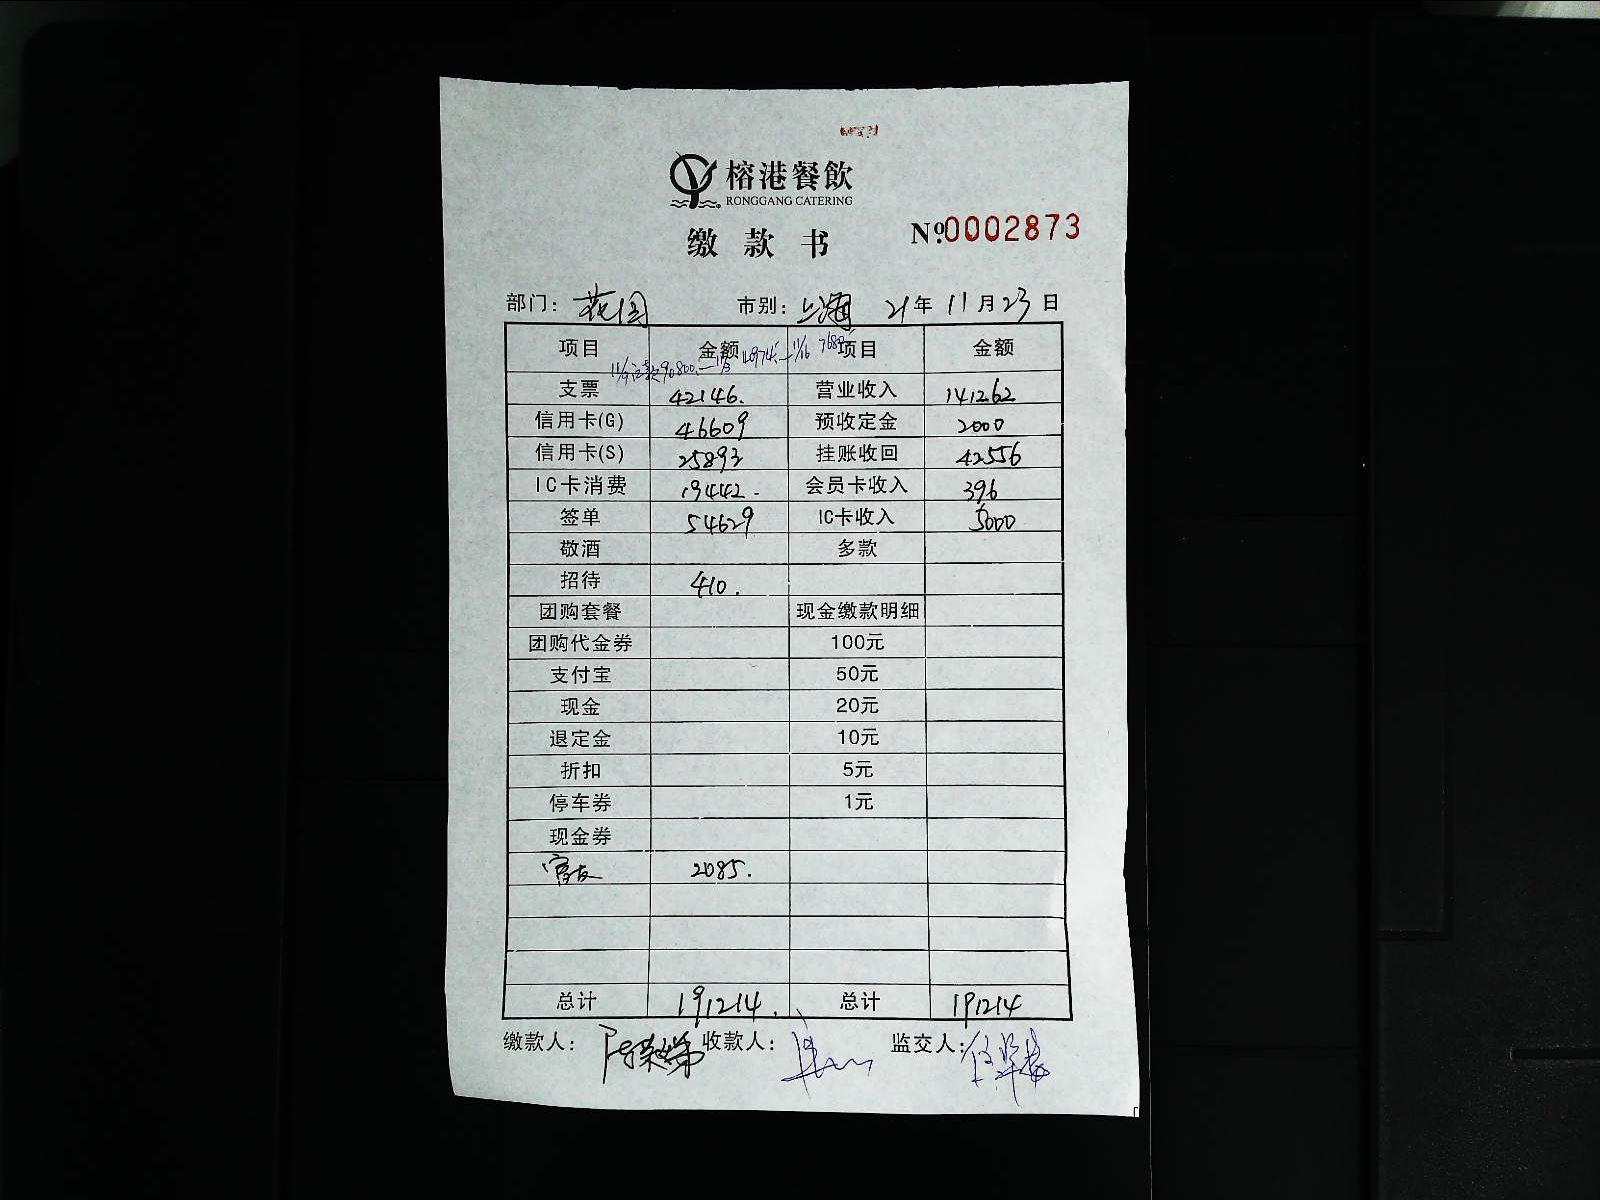 榕港餐飲
RONGGANG CATERING
缴款书 №0002873
部门: 花园 市别: 上海 21年11月23日
项目 金额 项目 金额
支票 42146. 营业收入 141262
信用卡(G) 46609 预收定金 2000
信用卡(S) 25893 挂账收回 42556
IC卡消费 19442. 会员卡收入 396
签单 54629 IC卡收入 5000
敬酒 多款
招待 410.
团购套餐 现金缴款明细
团购代金券 100元
支付宝 50元
现金 20元
退定金 10元
折扣 5元
停车券 1元
现金券
2085.
总计 191214. 总计 191214
缴款人: 收款人: 监交人: